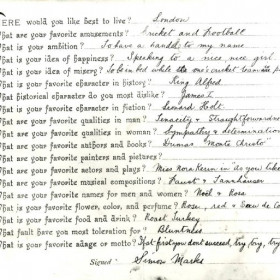 HERE would you like best to live? London
What are your favorite amusements? Cricket and Football
What is your ambition? To have a handle to my name
What is your idea of happiness? Speaking to a nice, nice girl
What is your idea of misery? To be in bed while the one's cricket team
What is your favorite character in history? King Alfred
What historical character do you most dislike? James I
What is your favorite character in fiction?
What are your favorite qualities in man? Tenacity & Straightforwardness
What are your favorite qualities in woman? Sympathy & determination
What are your favorite authors and books? Dumas "Monte Christo"
What are your favorite painters and pictures?
What are your favorite actors and plays? Miss Nora Kerin in "As you like
What are your favorite musical compositions? Faust & Tannhäuser
What are your favorite names for men and women? Noël & Rose
What is your favorite flower, color and perfume? Rose, red & Eau de Co
What is your favorite food and drink? Roast Turkey
What fault have you most toleration for? Bluntness
What is your favorite adage or motto? If at first you don't succeed, try, try, try
Signed Simon Marks